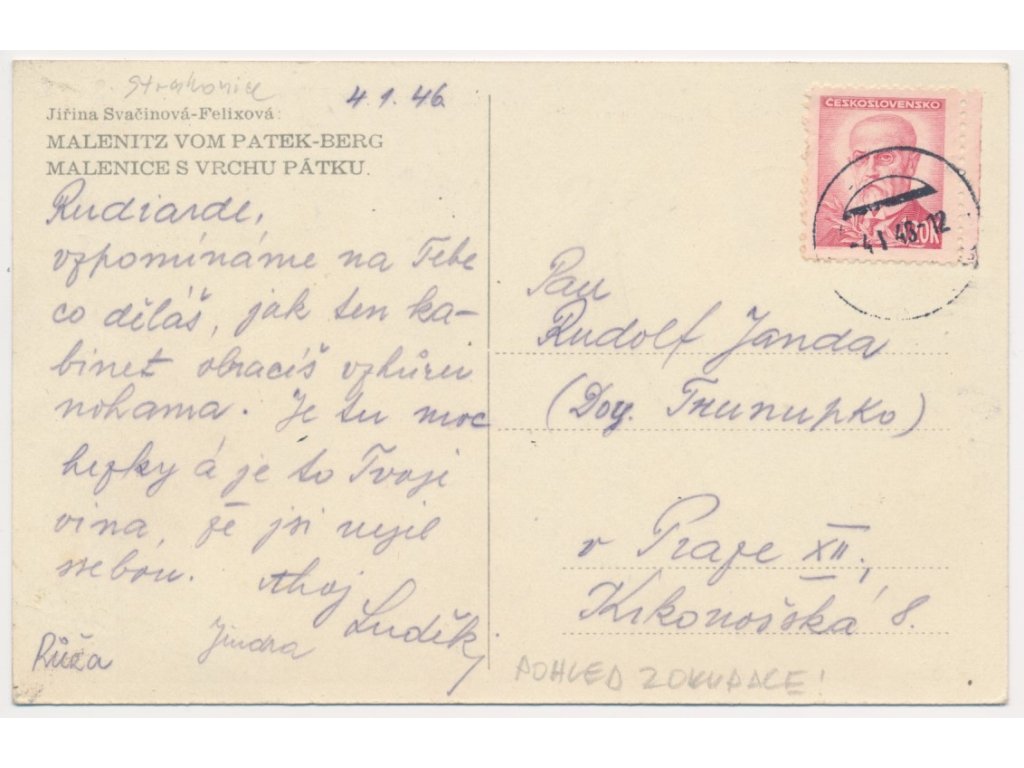 Strakonice
4.1.46
Jiřina Svačinová-Felixová:
MALENITZ VOM PATEK-BERG
MALENICE S VRCHU PÁTKU.
Rudiarde,
vzpomínáme na Tebe
co děláš, jak ten ka-
binet obracíš vzhůru
nohama. Je tu moc
hezky a je to Tvoje
vina, že jsi nejel
ssebou. Ahoj
Luděk
Jindra
Růža
ČESKOSLOVENSKO
-4 I 46-12
Pan
Rudolf Janda
v Praze XII.,
Krkonošská 8.
POHLED Z OKUPACE!